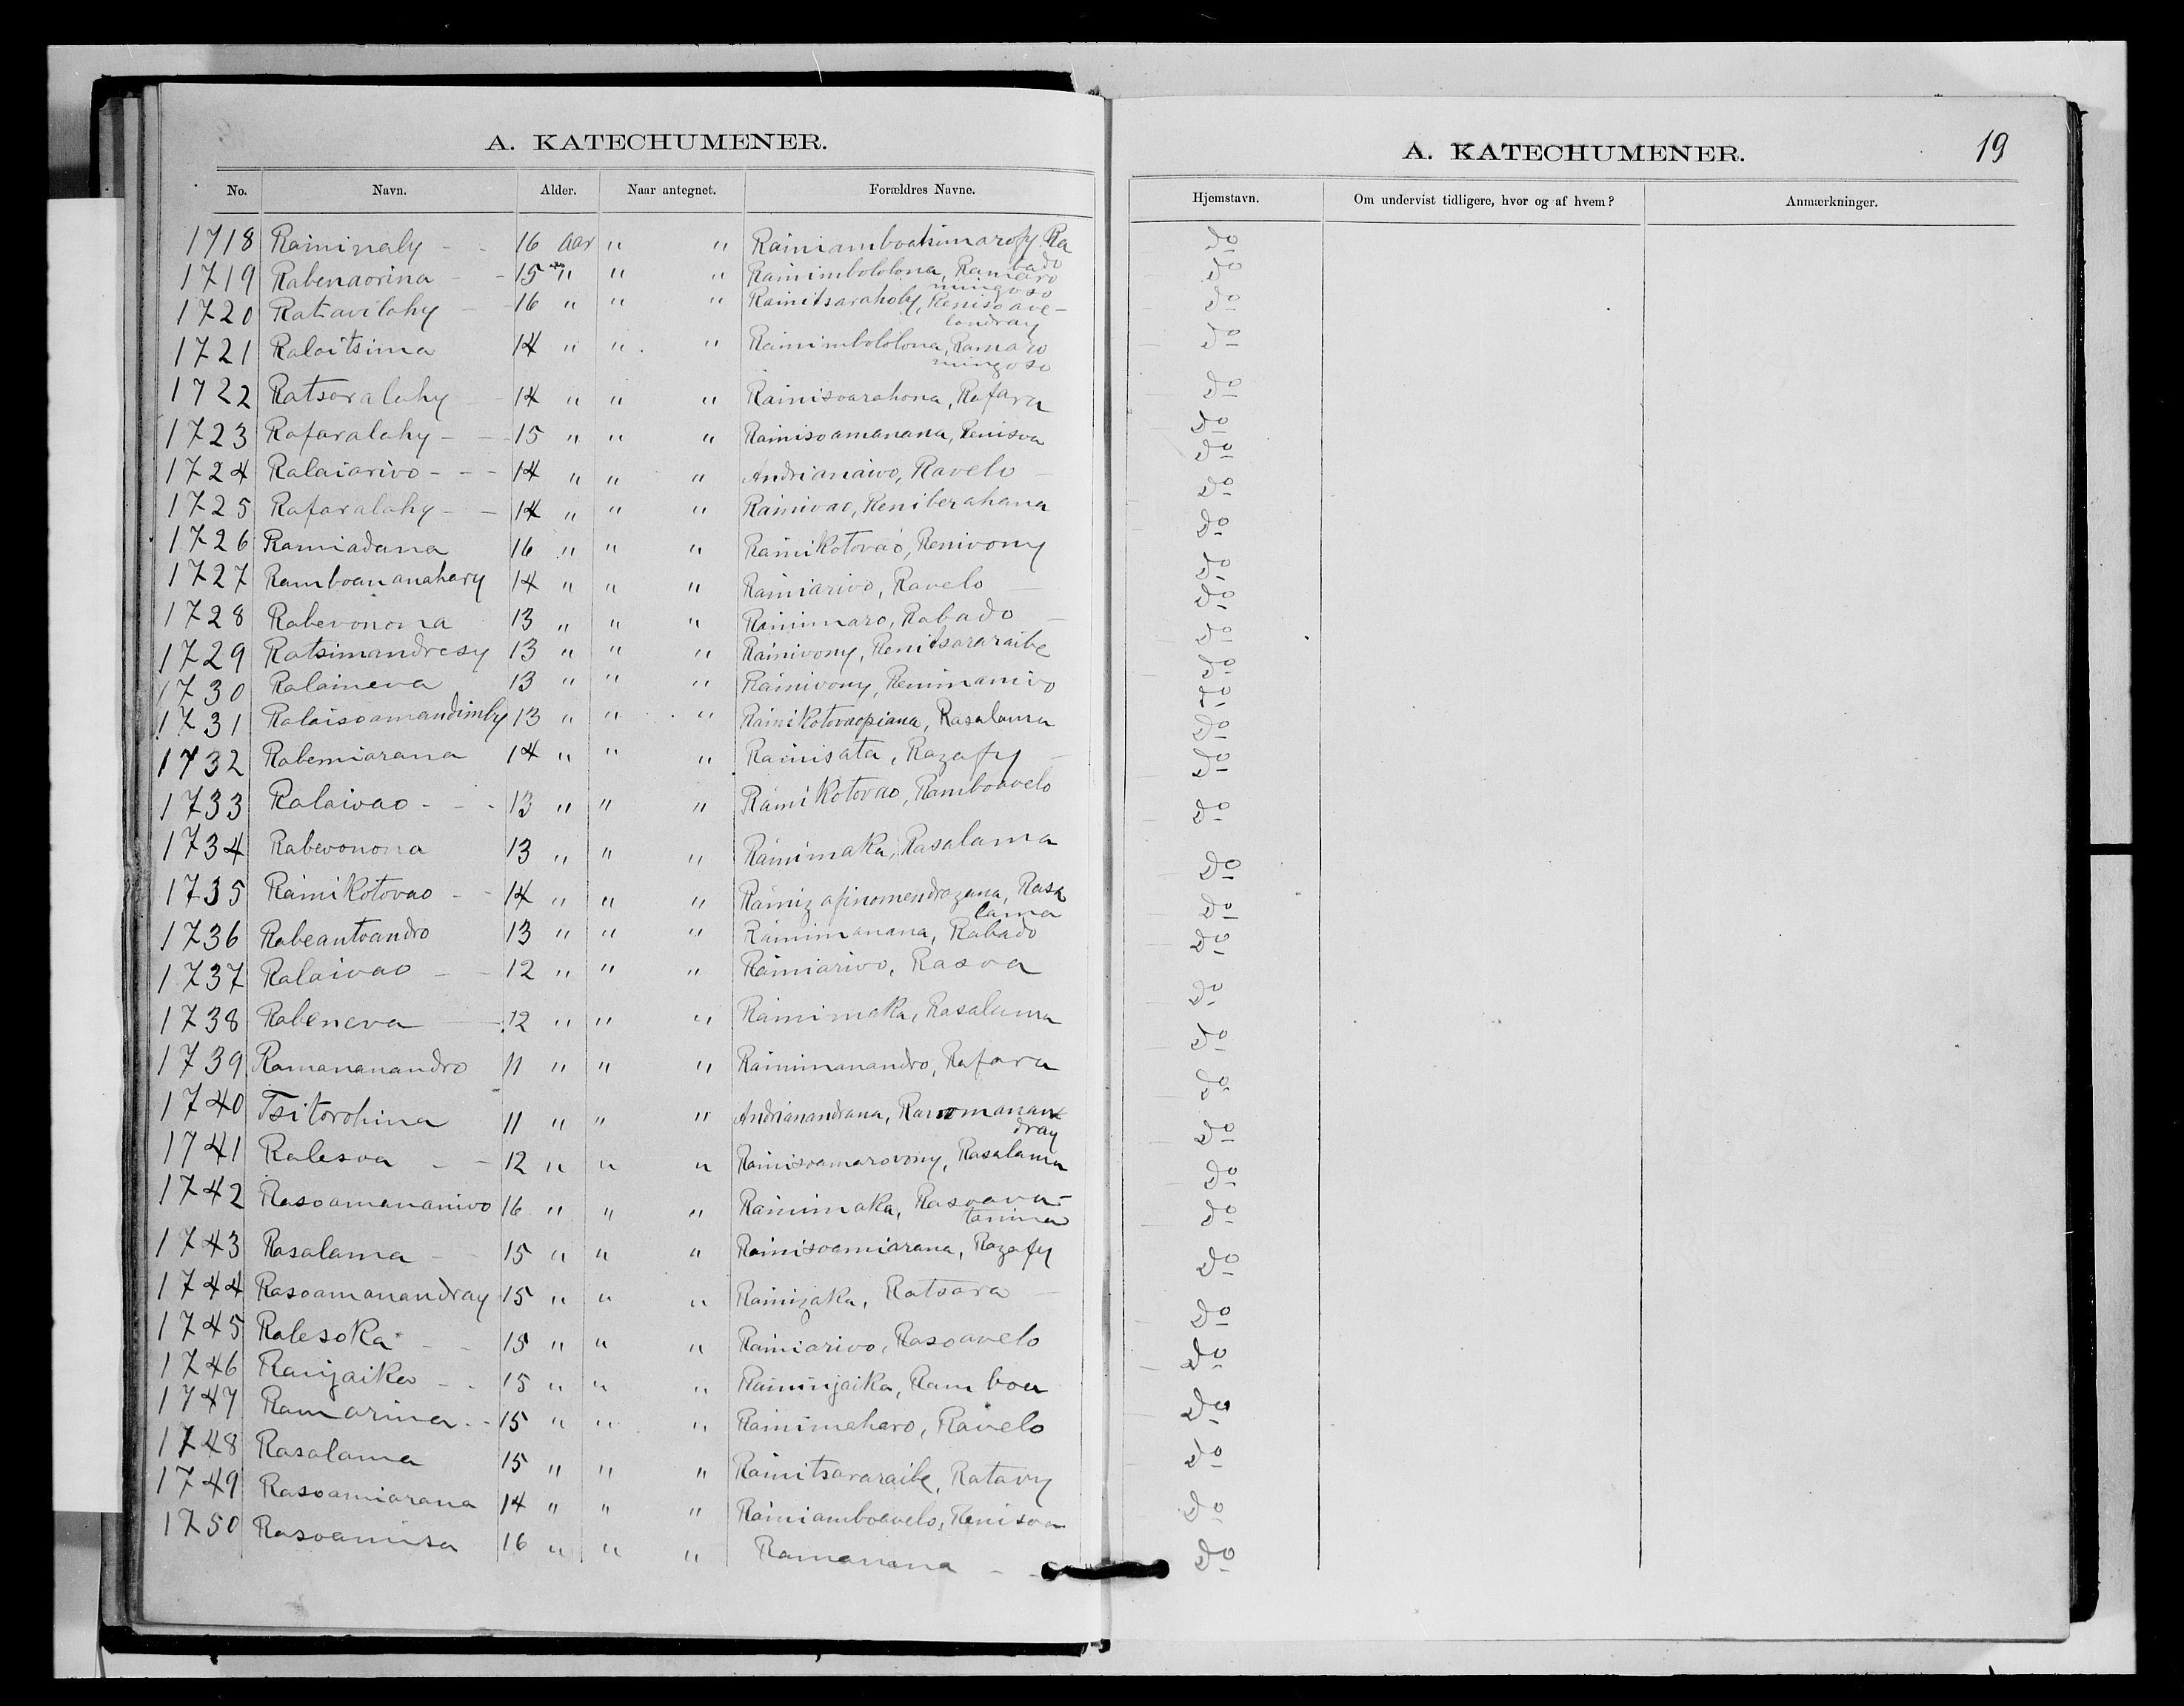 A. KATECHUMENER.
No. Navn. Alder. Naar antegnet. Forældres Navne.
1718 Raininaly - - 16 Aar " " Rainiamboahimarofy. Ra
bado
1719 Rabenaorina - - 15 " " " Rainimbololona, Ramaro
mingoso
1720 Ratavilahy - - 16 " " " Rainitsarahoby, Renisoave-
londray
1721 Ralaitsima 14 " " " Rainimbololona, Ramaro
mingoso
1722 Ratsaralahy - - 14 " " " Rainisoarahona, Rafara
1723 Rafaralahy - - 15 " " " Rainisoamanana, Renisoa
1724 Ralaiarivo - - - 14 " " " Andrianaivo, Ravelo
1725 Rafaralahy - - 14 " " " Rainivao, Reniberahana
1726 Ramiadana 16 " " " Rainikotovao, Renivony
1727 Ramboananahary 14 " " " Rainiarivo, Ravelo -
1728 Rabevonona 13 " " " Rainimaro, Rabado -
1729 Ratsimandresy 13 " " " Rainivony, Renitsararaibe
1730 Ralaineva 13 " " " Rainivony, Renimanivo
1731 Ralaisoamandimby 13 " " " Rainikotovaopiana, Rasalama
1732 Rabemiarana 14 " " " Rainisata, Razafy -
1733 Ralaivao - - - 13 " " " Rainikotovao, Ramboavelo
1734 Rabevonona 13 " " " Rainimaka, Rasalama
1735 Rainikotovao - - 14 " " " Rainizafinomendrazana, Rasa
lama
1736 Rabeantoandro 13 " " " Rainimanana, Rabado
1737 Ralaivao - - 12 " " " Rainiarivo, Rasoa
1738 Rabeneva - 12 " " " Rainimaka, Rasalama
1739 Ramananandro 11 " " " Rainimanandro, Rafara
1740 Tsitorohina 11 " " " Andrianandrana, Ramomanan
dray
1741 Ralesoa - - 12 " " " Rainisoamarovony, Rasalama
1742 Rasoamananivo 16 " " " Rainimaka, Rasoava-
tanina
1743 Rasalama - - 15 " " " Rainisoamiarana, Razafy
1744 Rasoamanandray 15 " " " Rainizaka, Ratsara -
1745 Ralesoka - - 15 " " " Rainiarivo, Rasoavelo
1746 Ranjaika - - 15 " " " Raininjaika, Ramboa
1747 Ramarina - - 15 " " " Rainimaharo, Ravelo
1748 Rasalama 15 " " " Rainitsararaibe, Ratavy
1749 Rasoamiarana 14 " " " Rainiamboavelo, Renisoa
1750 Rasoamisa 16 " " " Ramanana - -
A. KATECHUMENER. 19
Hjemstavn. Om undervist tidligere, hvor og af hvem? Anmærkninger.
Do
Do
Do
Do
Do
Do
Do
Do
Do
Do
Do
Do
Do
Do
Do
Do
Do
Do
Do
Do
Do
Do
Do
Do
Do
Do
Do
Do
Do
Do
Do
Do
Do